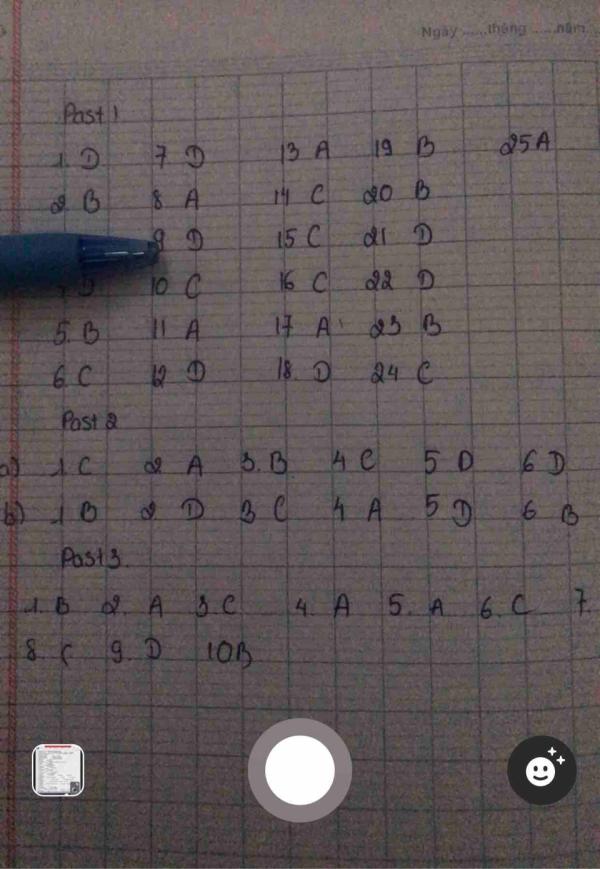 Ngày ......tháng ......năm
Past 1
1. D 7 D 13 A 19 B 25 A
2. B 8 A 14 C 20 B
9 D 15 C 21 D
10 C 16 C 22 D
5. B 11 A 17 A 23 B
6. C 12 D 18. D 24 C
Past 2
a) 1 C 2 A 3. B 4 C 5 D 6 D
b) 1 B 2 D 3 C 4 A 5 D 6 B
Past 3.
1. B 2. A 3. C 4. A 5. A 6. C 7.
8. C 9. D 10B